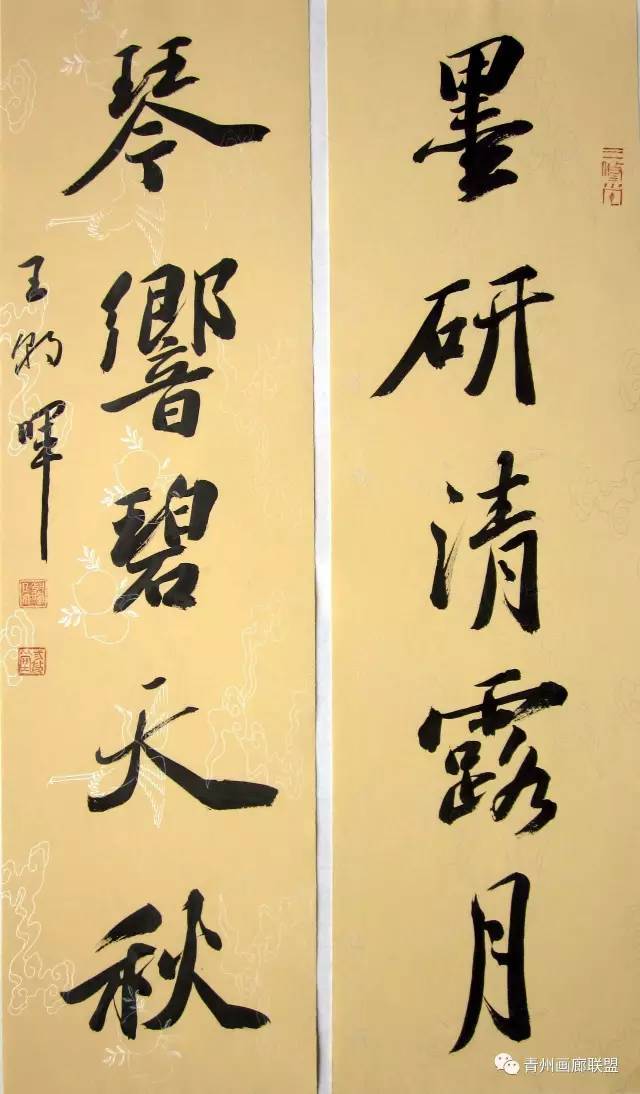 墨研清露月
琴響碧天秋
王
暉
青州画廊联盟